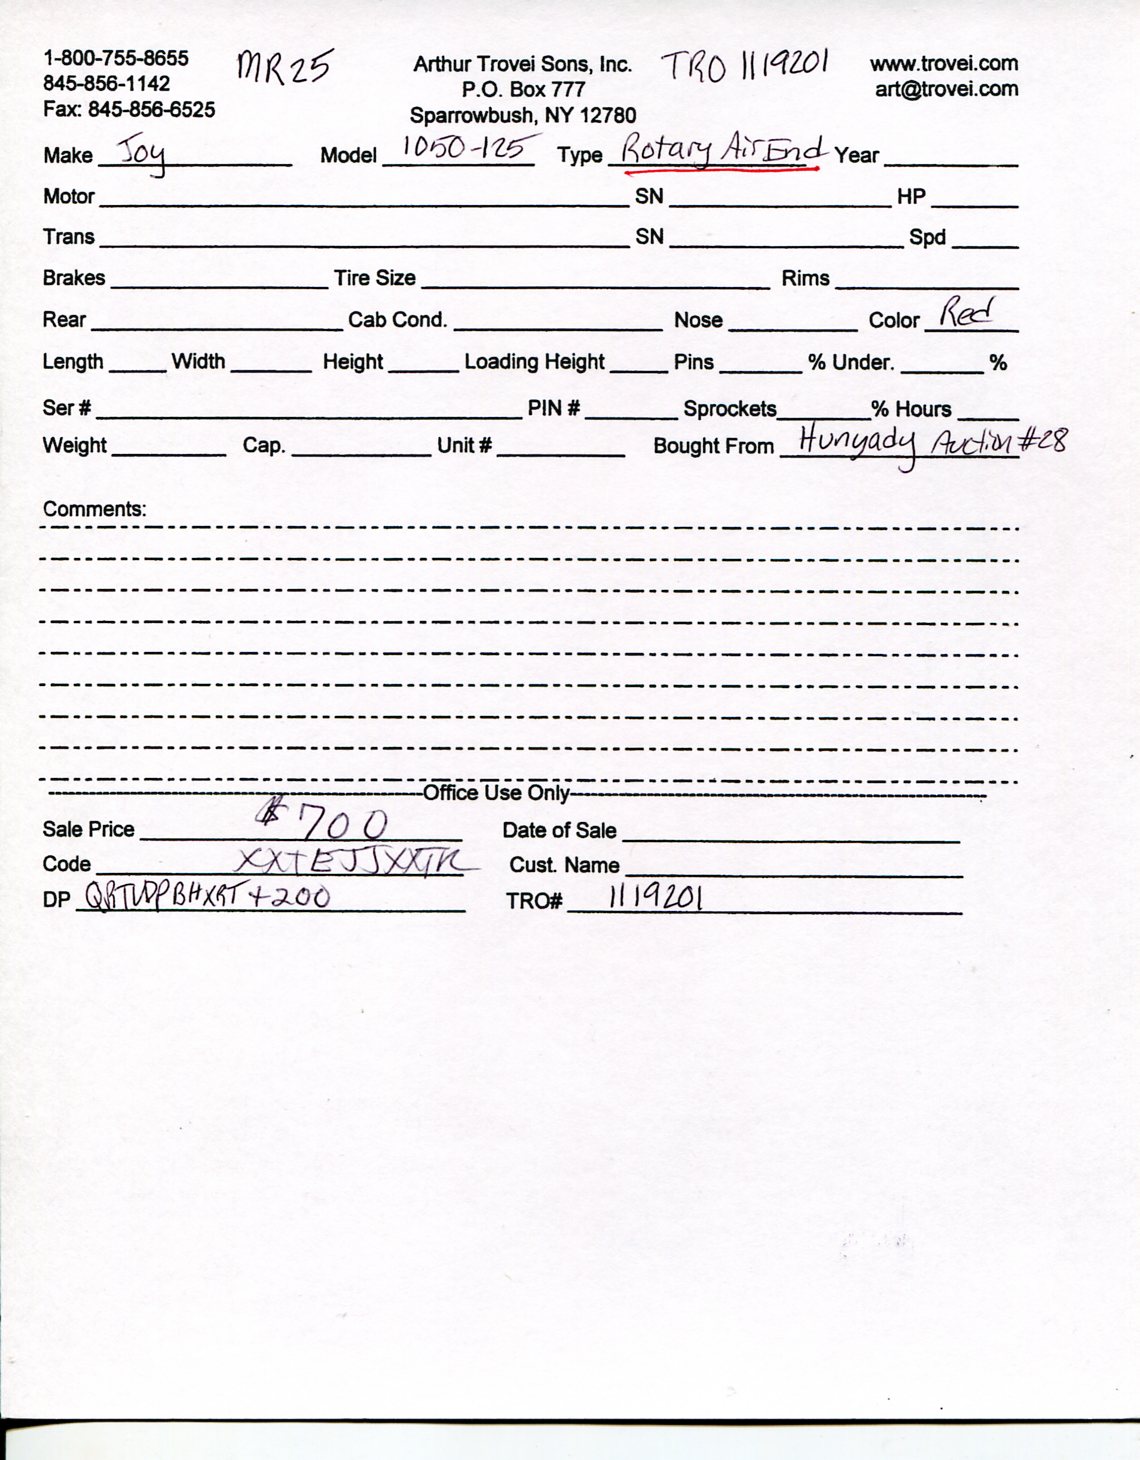 1-800-755-8655 MR25 Arthur Trovei Sons, Inc. TRO 1119201 www.trovei.com
845-856-1142 P.O. Box 777 art@trovei.com
Fax: 845-856-6525 Sparrowbush, NY 12780
Make Joy Model 1050-125 Type Rotary Air End Year
Motor SN HP
Trans SN Spd
Brakes Tire Size Rims
Rear Cab Cond. Nose Color Red
Length Width Height Loading Height Pins % Under. %
Ser # PIN # Sprockets % Hours
Weight Cap. Unit # Bought From Hunyady Auction #28
Comments:
Office Use Only
Sale Price $700 Date of Sale
Code Cust. Name
DP +200 TRO# 1119201